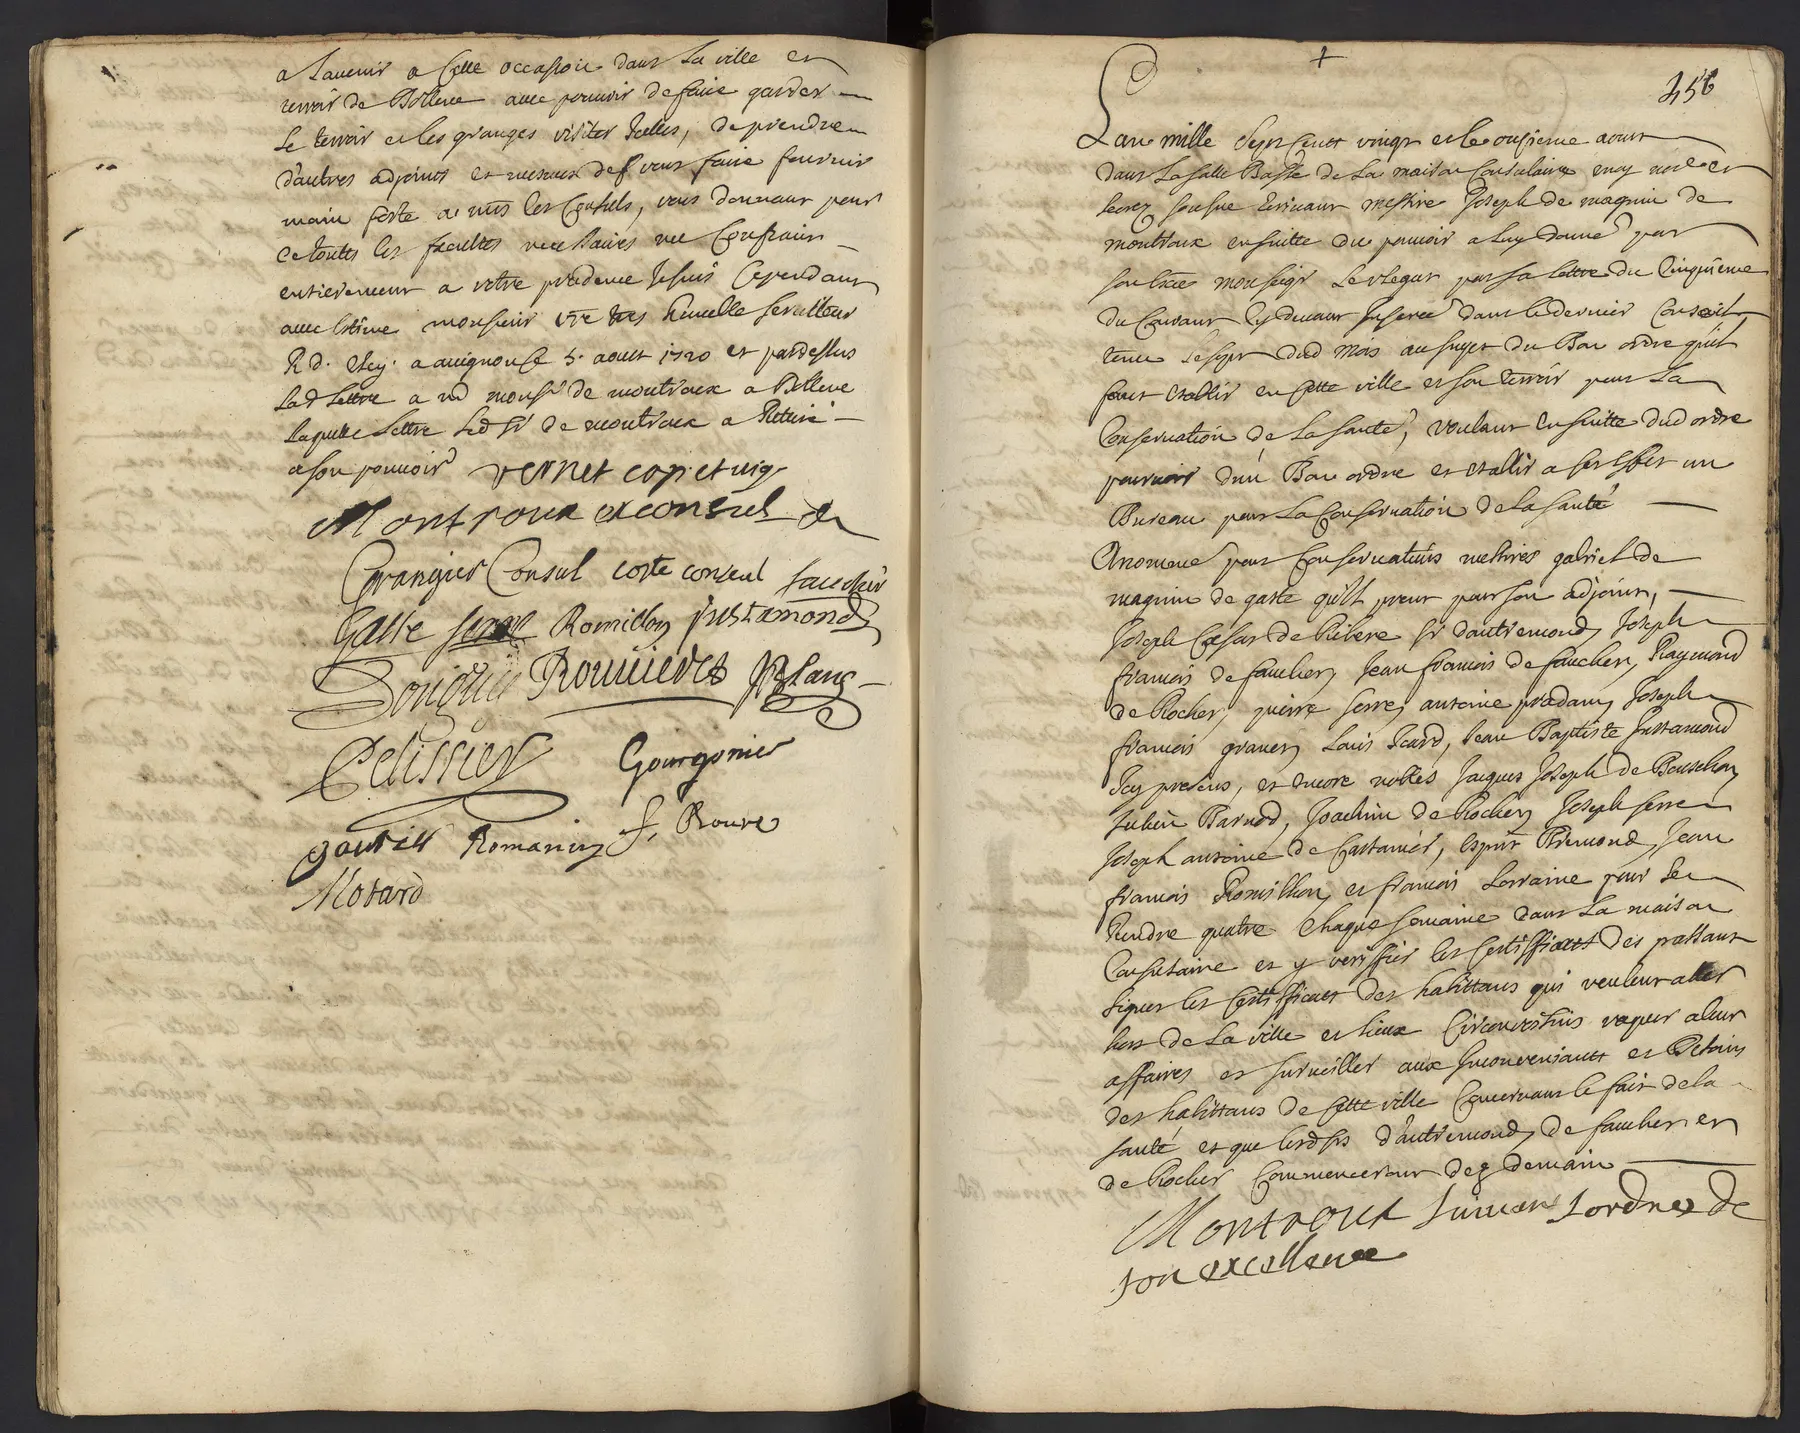 a Lauenir a Cette occasion dans La ville et
terroir de Bollene auec pouuoir de faire garder
Le terroir et les granges visiter Icelles, de prendre
d'autres adjoints et mesme de vous faire fournir
main forte a mrs les Consuls, vous donnant pour
ce toutes les facultés necessaires me Confiant
entierement a votre prudence Je suis Cependant
auec Estime monsieur vre tres humble seruiteur
R d. vleg. a auignon ce 5. aoust 1720 et par dessus
Lad Lettre a md monsr de montroux a Bollene
Laquelle Lettre led sr de montroux a Retiré
a son pouuoir vernet copietuig
Montroux exconsul
Grangier Consul coste conseul faucher
Gaste serre Romillon justamond
Rouuieres Blanc
Pelissier Gourgonier
gautier Romanin f, Roure
Motard
456
Lan mille sept Cent vingt et le onsieme aoust
dans La salle Basse de La maison Consulaire moy nore et
secrere soussne Ecriuant messire Joseph de magnin de
montroux ensuitte du pouuoir a luy donné par
son Exce monseigr Le vlegat par sa lettre du Cinquieme
du Courant Cy deuant Inseree dans le dernier Conseil
tenu Le sept dud mois au sujet du Bon ordre qu'il
faut establir en Cette ville et son terroir pour La
Conseruation de La santé, voulant Ensuitte dud ordre
pouruoir d'un Bon ordre et establir a ses effets un
Bureau pour La Conseruation de La santé
A nommé pour Conseruateurs messires gabriel de
magnin de gaste qu'il prent pour son adjoint,
Joseph Cæsar de Ribere sr d'autremond, Joseph
francois de faucher, Jean francois de faucher, Raymond
de Rocher, pierre serre, antoine pradan, Joseph
francois granet, Louis Icard, Jean Baptiste Justamond
Icy presens, et encore nobles Jacques Joseph de
Julien Barnod, Joachim de Rocher, Joseph serre
Joseph antoine de Castanier, Esprit Rimond, Jean
francois Romillon, et francois Lorraine pour se
Rendre quatre Chaque semaine dans La maison
Consulaire et y veriffier les Certifficats des passans
signer les Certifficats des habittans qui veuleut aller
hors de La ville et lieux Circonvoisins vaquer a leur
affaires et surueiller aux Inconveniants et Besoins
des habittans de Cette ville Concernant le fait de la
santé et que lesdsrs d'autremond, de faucher et
de Rocher Commenceront dez demain
Montroux suiuant Lordre de
son excellance